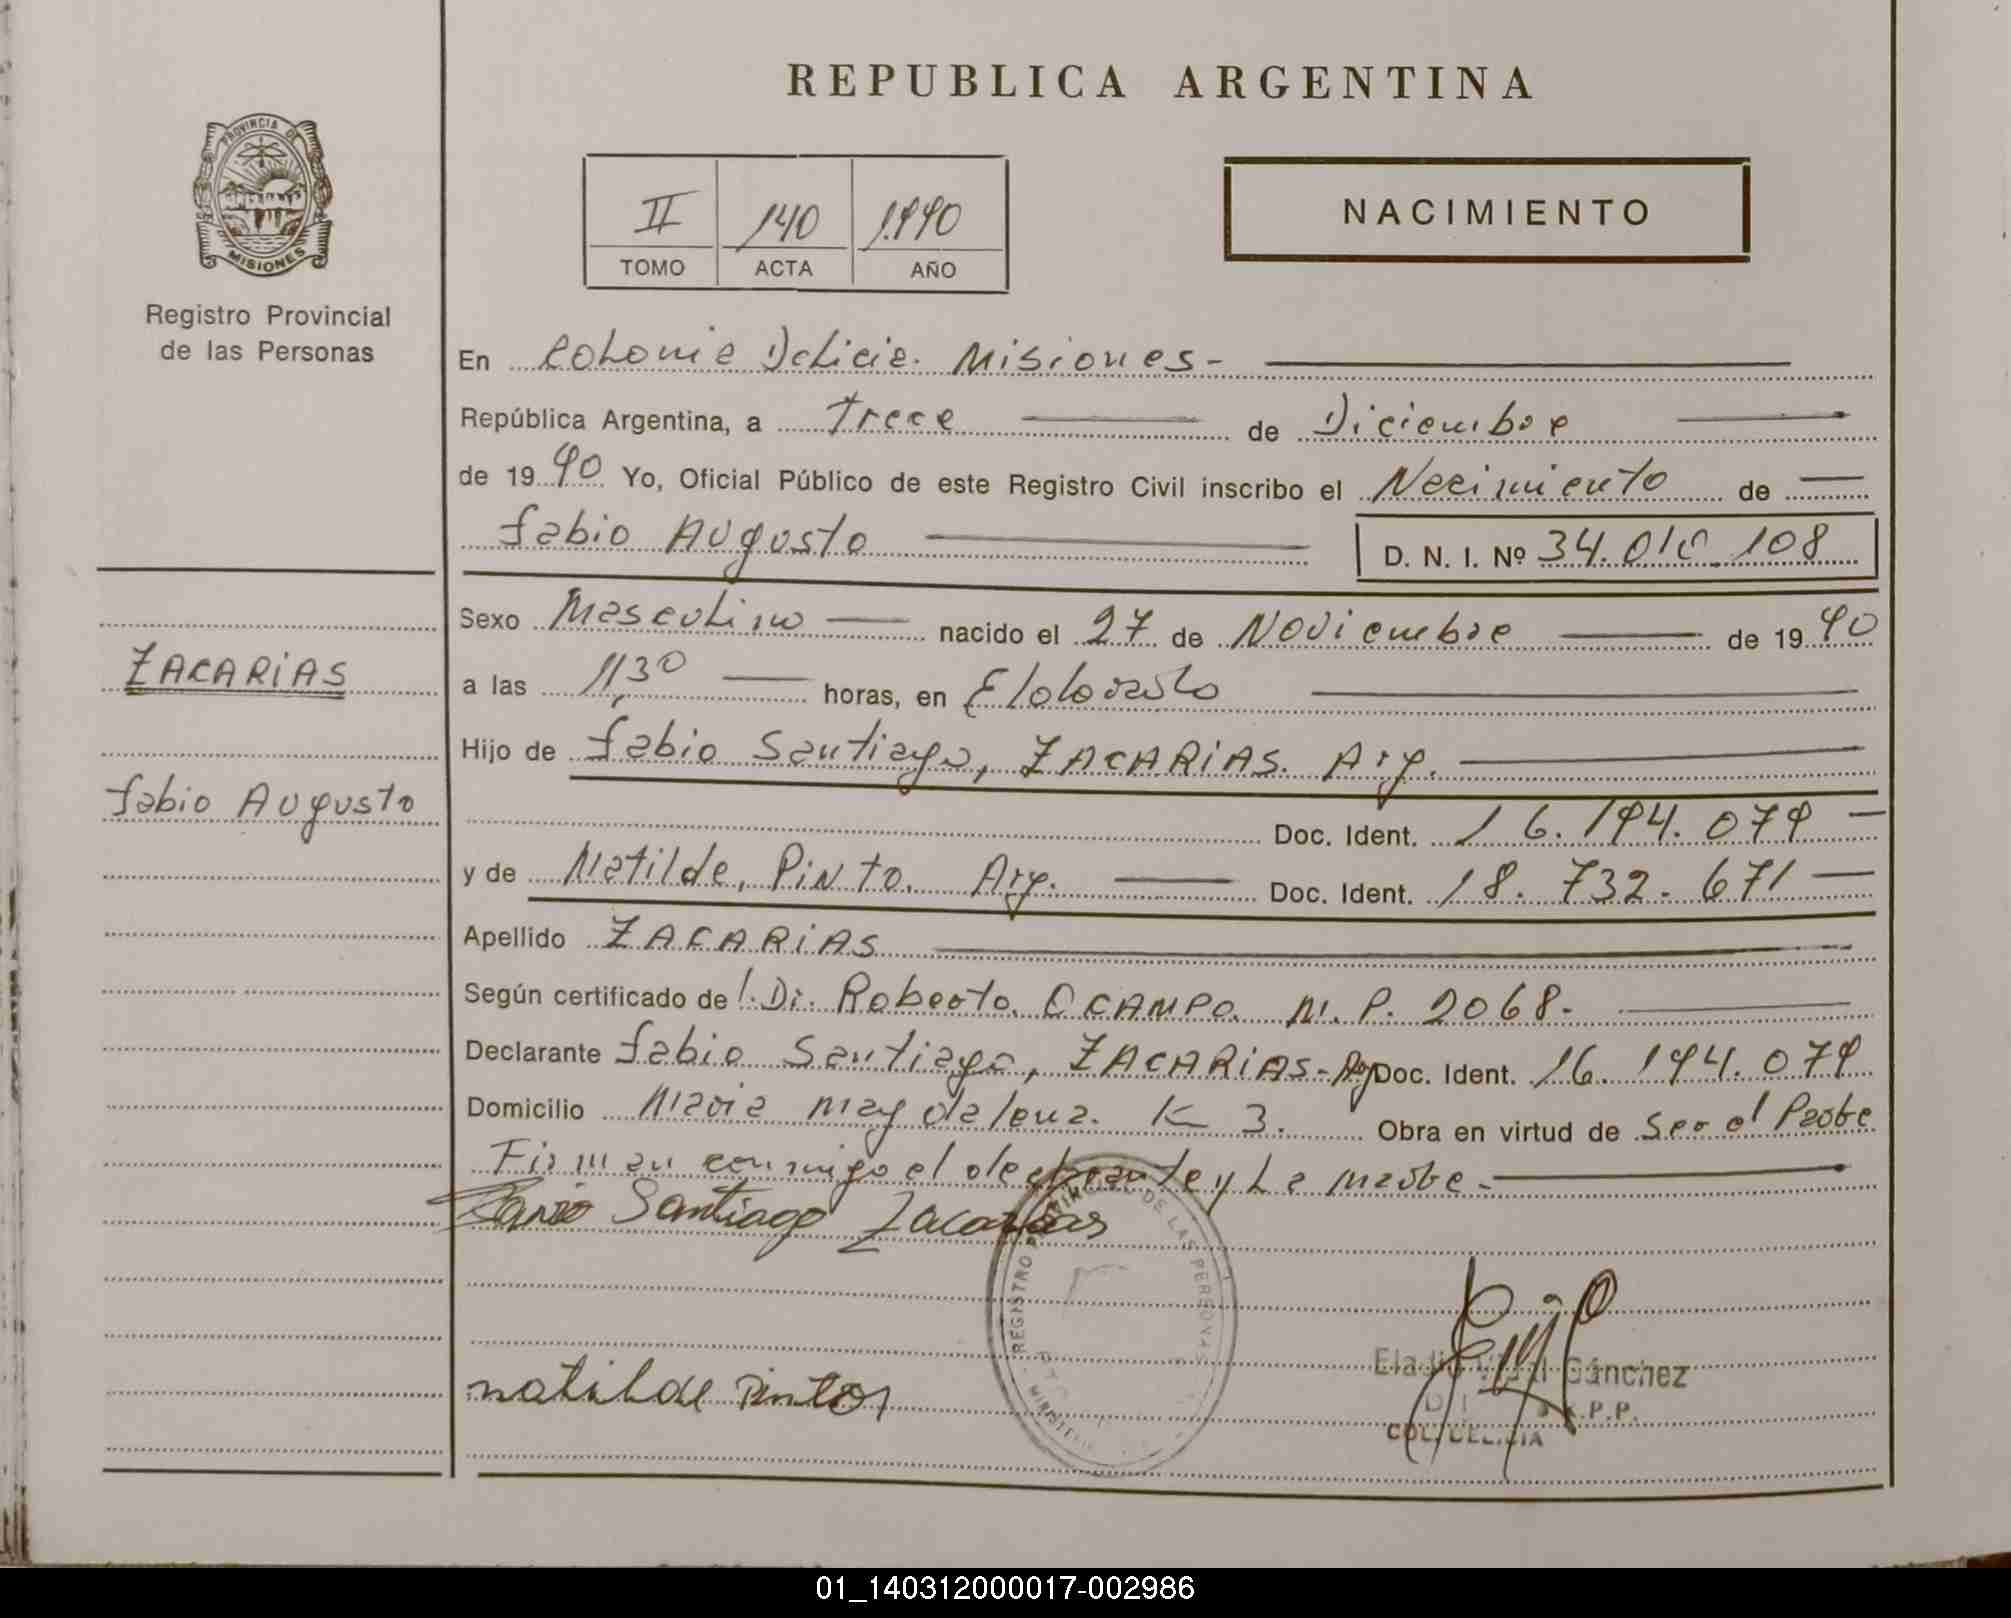 REPUBLICA ARGENTINA
PROVINCIA DE
MISIONES
Registro Provincial
de las Personas
II 140 1.990
TOMO ACTA AÑO
NACIMIENTO
En Colonia Delicia. Misiones-
República Argentina, a Trece de Diciembre
de 19 90 Yo, Oficial Público de este Registro Civil inscribo el Nacimiento de
Fabio Augusto
D. N. I. Nº 34.010.108
Sexo Masculino nacido el 27 de Noviembre de 19 90
a las 11,30 horas, en Eldorado
Hijo de Fabio Santiago, ZACARIAS. Arg.
Doc. Ident. 16.194.079
y de Matilde, Pinto. Arg. Doc. Ident. 18.732.671
Apellido ZACARIAS
Según certificado de Dr. Roberto. OCAMPO. M. P. 2068.
Declarante Fabio Santiago, ZACARIAS-Arg Doc. Ident. 16.194.079
Domicilio Maria magdalena. K 3. Obra en virtud de Ser el Padre
Firman conmigo el declarante y La madre-
ZACARIAS
Fabio Augusto
Fabio Santiago Zacarias
REGISTRO PROVINCIAL DE LAS PERSONAS
matilde Pinto
Eladio Vidal Sánchez
R.P.P.
COL. DELICIA
01_140312000017-002986